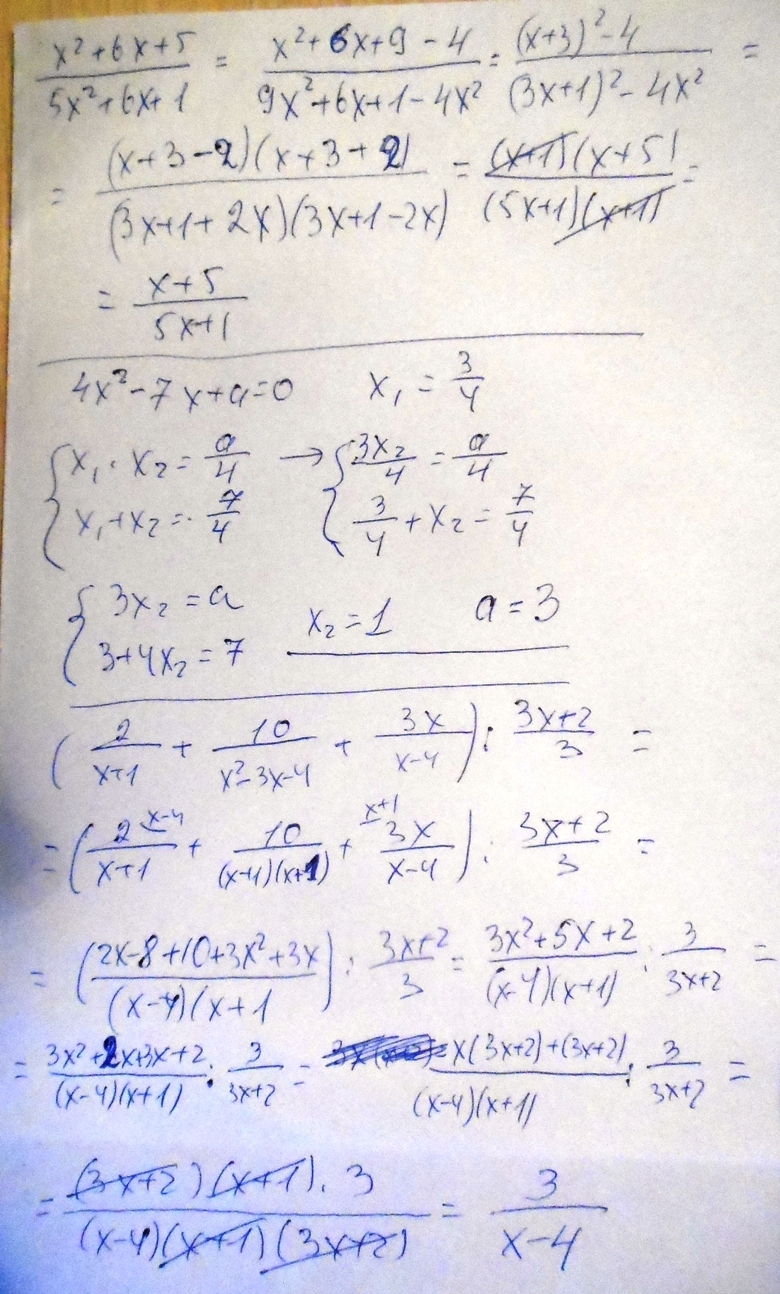 x²+6x+5 / 5x²+6x+1 = x²+6x+9-4 / 9x²+6x+1-4x² = (x+3)²-4 / (3x+1)²-4x² =
= (x+3-2)(x+3+2) / (3x+1+2x)(3x+1-2x) = (x+1)(x+5) / (5x+1)(x+1) =
= x+5 / 5x+1
4x²-7x+a=0 x₁ = 3/4
{ x₁·x₂ = a/4 → { 3x₂/4 = a/4
x₁+x₂ = 7/4 3/4 + x₂ = 7/4
{ 3x₂ = a
3+4x₂ = 7 x₂=1 a=3
( 2/x+1 + 10/x²-3x-4 + 3x/x-4 ) : 3x+2/3 =
= ( 2 x-4/x+1 + 10/(x-4)(x+1) + x+1 3x/x-4 ) : 3x+2/3 =
= ( 2x-8+10+3x²+3x / (x-4)(x+1 ) : 3x+2/3 = 3x²+5x+2 / (x-4)(x+1) : 3/3x+2 =
= 3x²+2x+3x+2 / (x-4)(x+1) : 3/3x+2 = x(3x+2)+(3x+2) / (x-4)(x+1) : 3/3x+2 =
= (3x+2)(x+1)·3 / (x-4)(x+1)(3x+2) = 3 / x-4